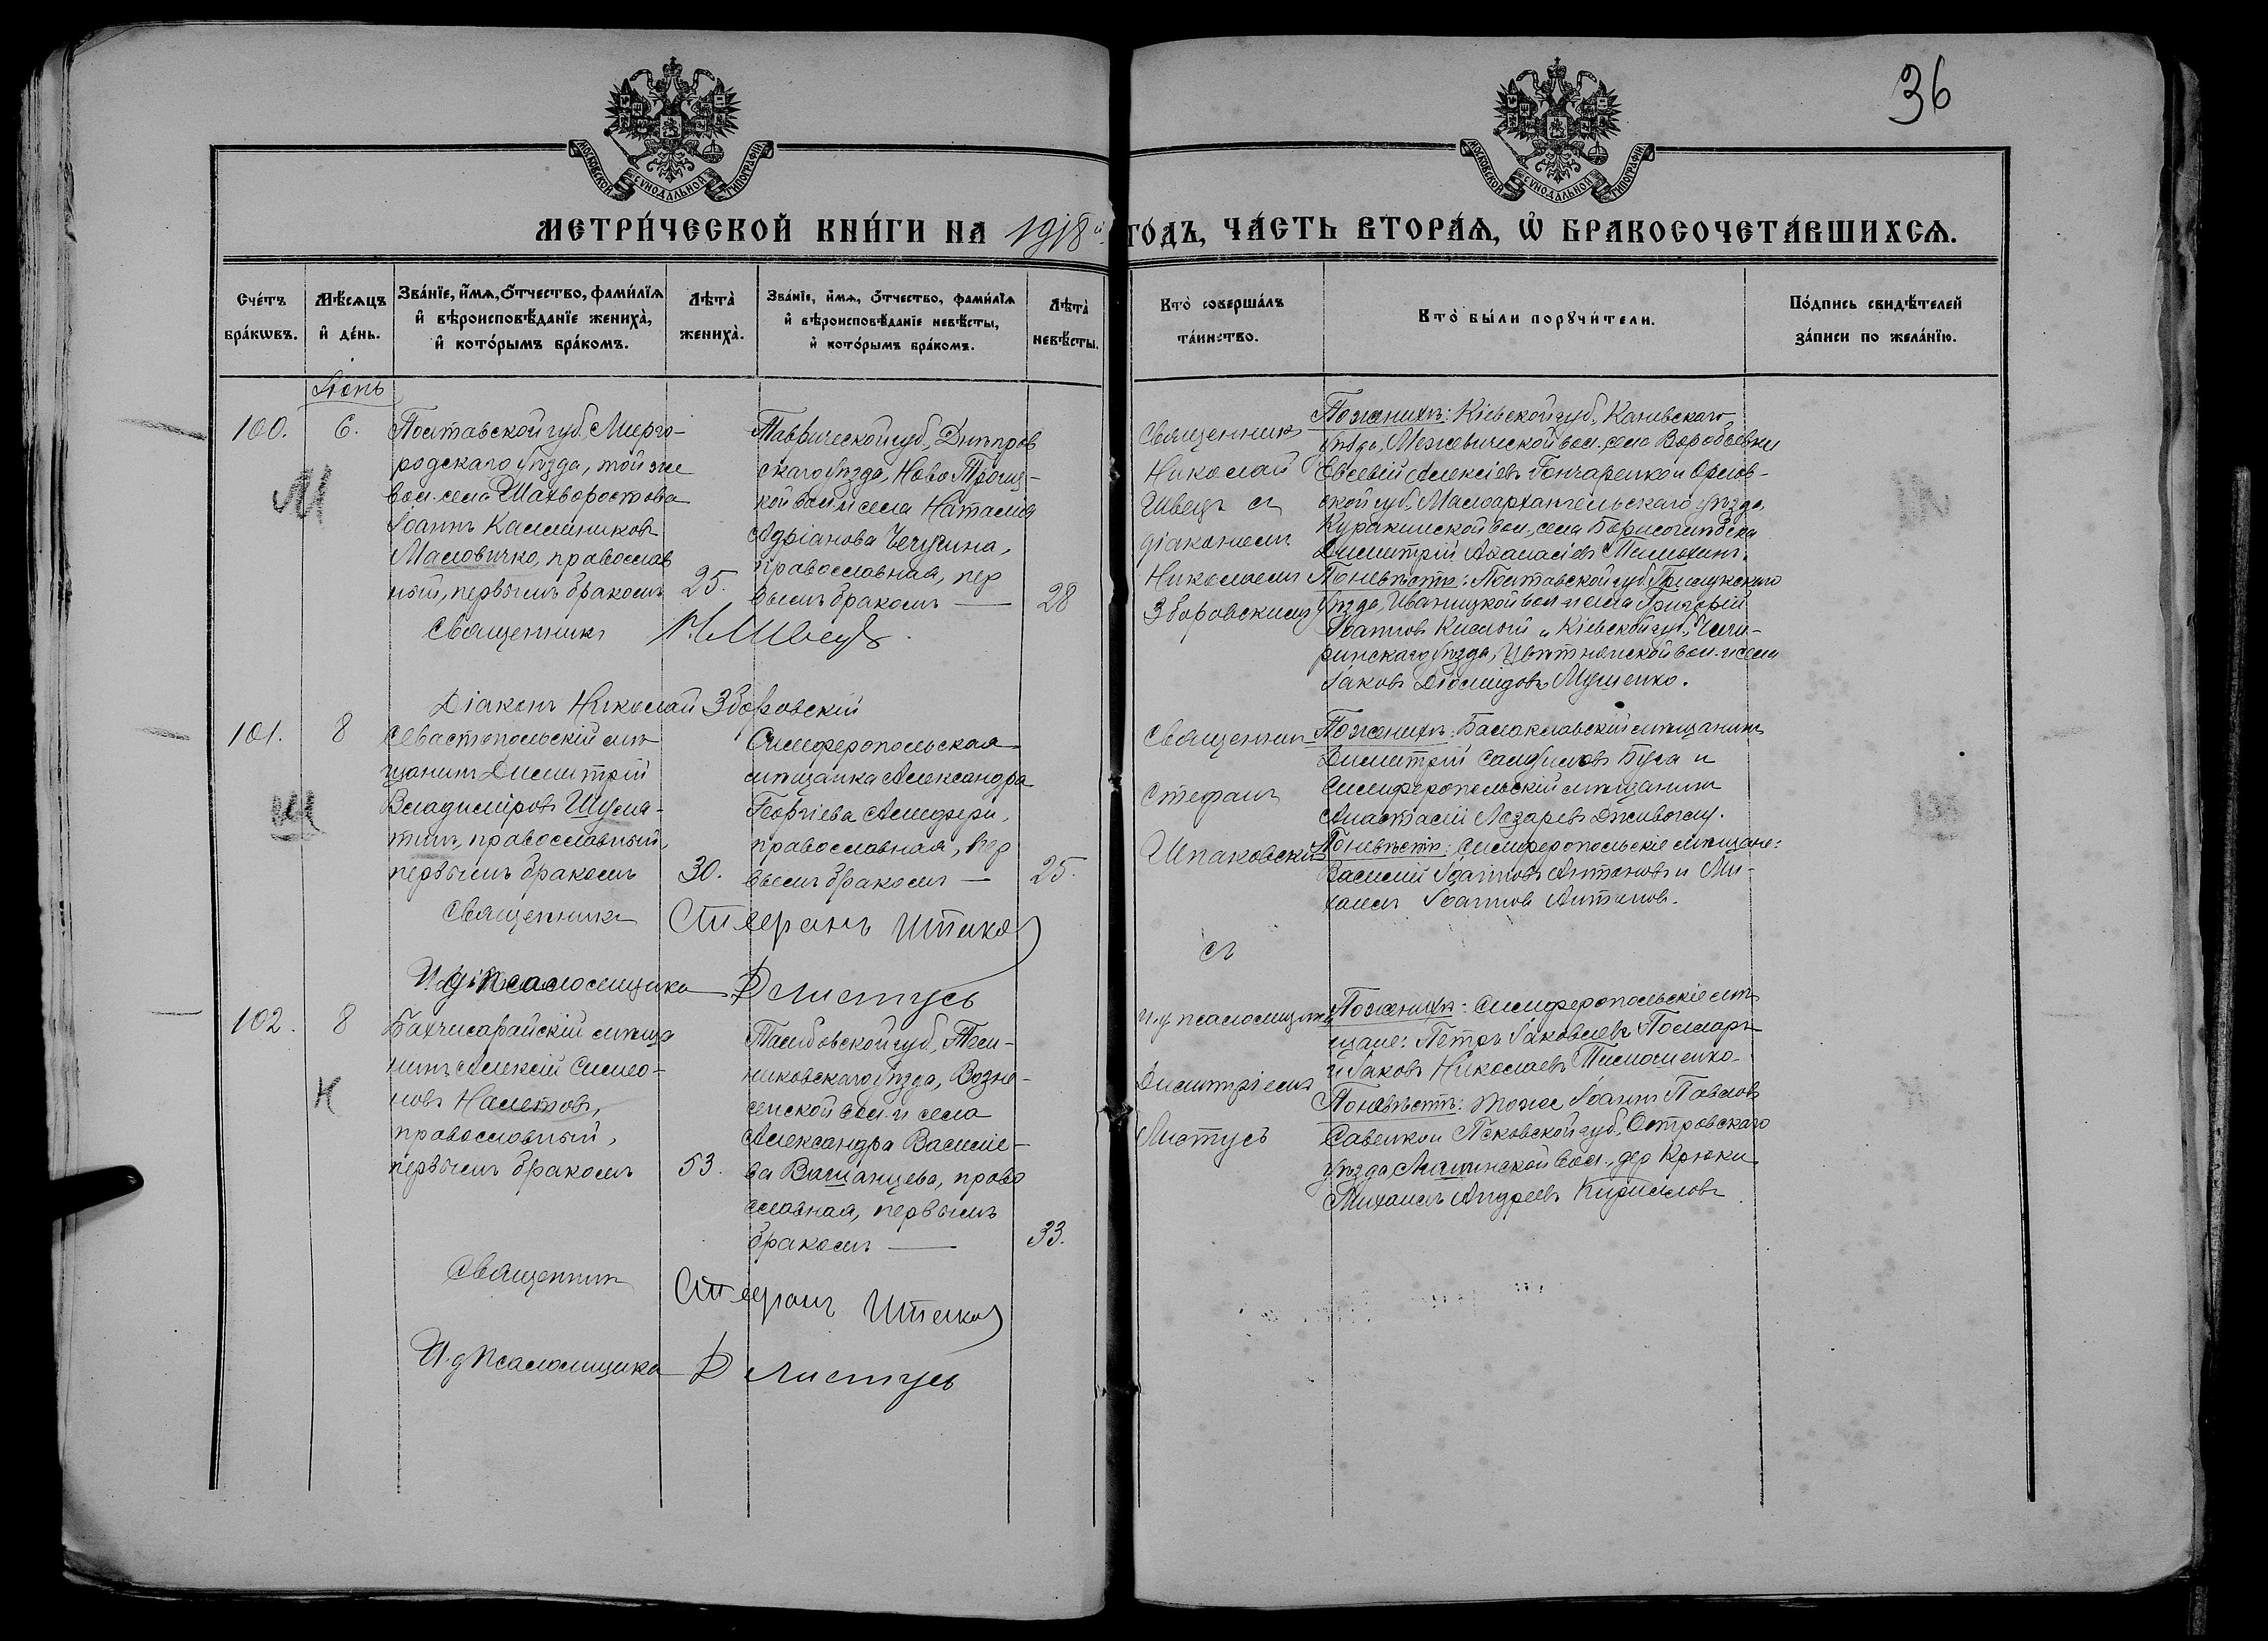 36
МОСКОВСКОЙ СѴНОДАЛЬНОЙ ТИПОГРАФІИ
МОСКОВСКОЙ СѴНОДАЛЬНОЙ ТИПОГРАФІИ
МЕТРИ́ЧЕСКОЙ КНИ́ГИ НА 1918й ГО́ДЪ, ЧА́СТЬ ВТОРА́Ѧ, Ѡ҆ БРАКОСОЧЕТА́ВШИХСѦ.
Сче́тъ
бра́кѡвъ.
Мѣ́сѧцъ
и҆ де́нь.
Зва́нїе, и҆́мѧ, о҆́тчество, фами́лїѧ
и҆ вѣроисповѣ́данїе жениха̀,
и҆ кото́рымъ бра́комъ.
Лѣта̀
жениха̀.
Зва́нїе, и҆́мѧ, о҆́тчество, фами́лїѧ
и҆ вѣроисповѣ́данїе невѣ́сты,
и҆ кото́рымъ бра́комъ.
Лѣта̀
невѣ́сты.
Кто̀ соверша́лъ
та́инство.
Кто̀ бы́ли порꙋчи́тели.
По́дпись свидѣ́телей
за́писи по жела́нїю.
Іюнь
100.
6.
М
Полтавской губ., Мирго-
родскаго уѣзда, той же
вол. села Шахворостова
Іоаннъ Каллиников
Масловичко, православ
ный, первымъ бракомъ
25.
Таврической губ., Днѣпров
скаго уѣзда, Ново Троиц-
кой вол. и села Наталія
Адріанова Чечугина,
православная, пер
вымъ бракомъ —
28
Священникъ
Николай
Швецъ съ
діакономъ
Николаемъ
Зборовскимъ
По женихѣ: Кіевской губ., Каневскаго
уѣзда, Межиричской вол., села Воробьевки
Евсевій Алексіевъ Гончаренко и Орлов-
ской губ., Малоархангельскаго уѣзда,
Куракинской вол., села Борисоглѣбска
Димитрій Аѳанасіевъ
По невѣстѣ: Полтавской губ. Прилукскаго
уѣзда, Иваницкой вол. и села Григорій
Іоанновъ Кислый и Кіевской губ., Чиги-
ринскаго уѣзда, Цвѣтнянской вол. и села
Іаковъ Діомидовъ Мушенко.
Священникъ Н. Швецъ
Діаконъ Николай Зборовскій
101.
8
Ш
Севастопольскій мѣ-
щанинъ Димитрій
Владиміровъ Шуля-
тин, православный,
первымъ бракомъ
30.
Симферопольская
мѣщанка Александра
Георгіева Алифери,
православная, пер
вымъ бракомъ —
25.
Священник
Стефанъ
Шпаковскій
По женихѣ: Балаклавскій мѣщанинъ
Димитрій Самуиловъ Буга и
Симферопольскій мѣщанинъ
Анастасій Лазаревъ
По невѣстѣ: Симферопольскіе мѣщане:
Василій Іоанновъ Антоновъ и Ми-
хаилъ Іоаннов Антонов.
Священникъ Стефанъ
И.д. псаломщика Д Листусъ
102.
8
Н
Бахчисарайскій мѣща
нинъ Алексій Симео-
новъ Налетовъ,
православный,
первымъ бракомъ
53.
Тамбовской губ., Тем-
никовскаго уѣзда, Возне-
сенской вол. и села
Александра Василіе-
ва Вашанцева, право
славная, первымъ
бракомъ —
33.
съ
и.д. псаломщика
Димитріемъ
Листусъ
По женихѣ: Симферопольскіе мѣ-
щане: Петръ Іаковлевъ
и Іаковъ Николаевъ
По невѣстѣ: тоже Іоаннъ Павловъ
Савенко и Псковской губ., Островскаго
уѣзда, вол., дер. Крюки
Михаилъ Андреевъ Кирилловъ
Священник Стефанъ
И.д. псаломщика Д Листусъ